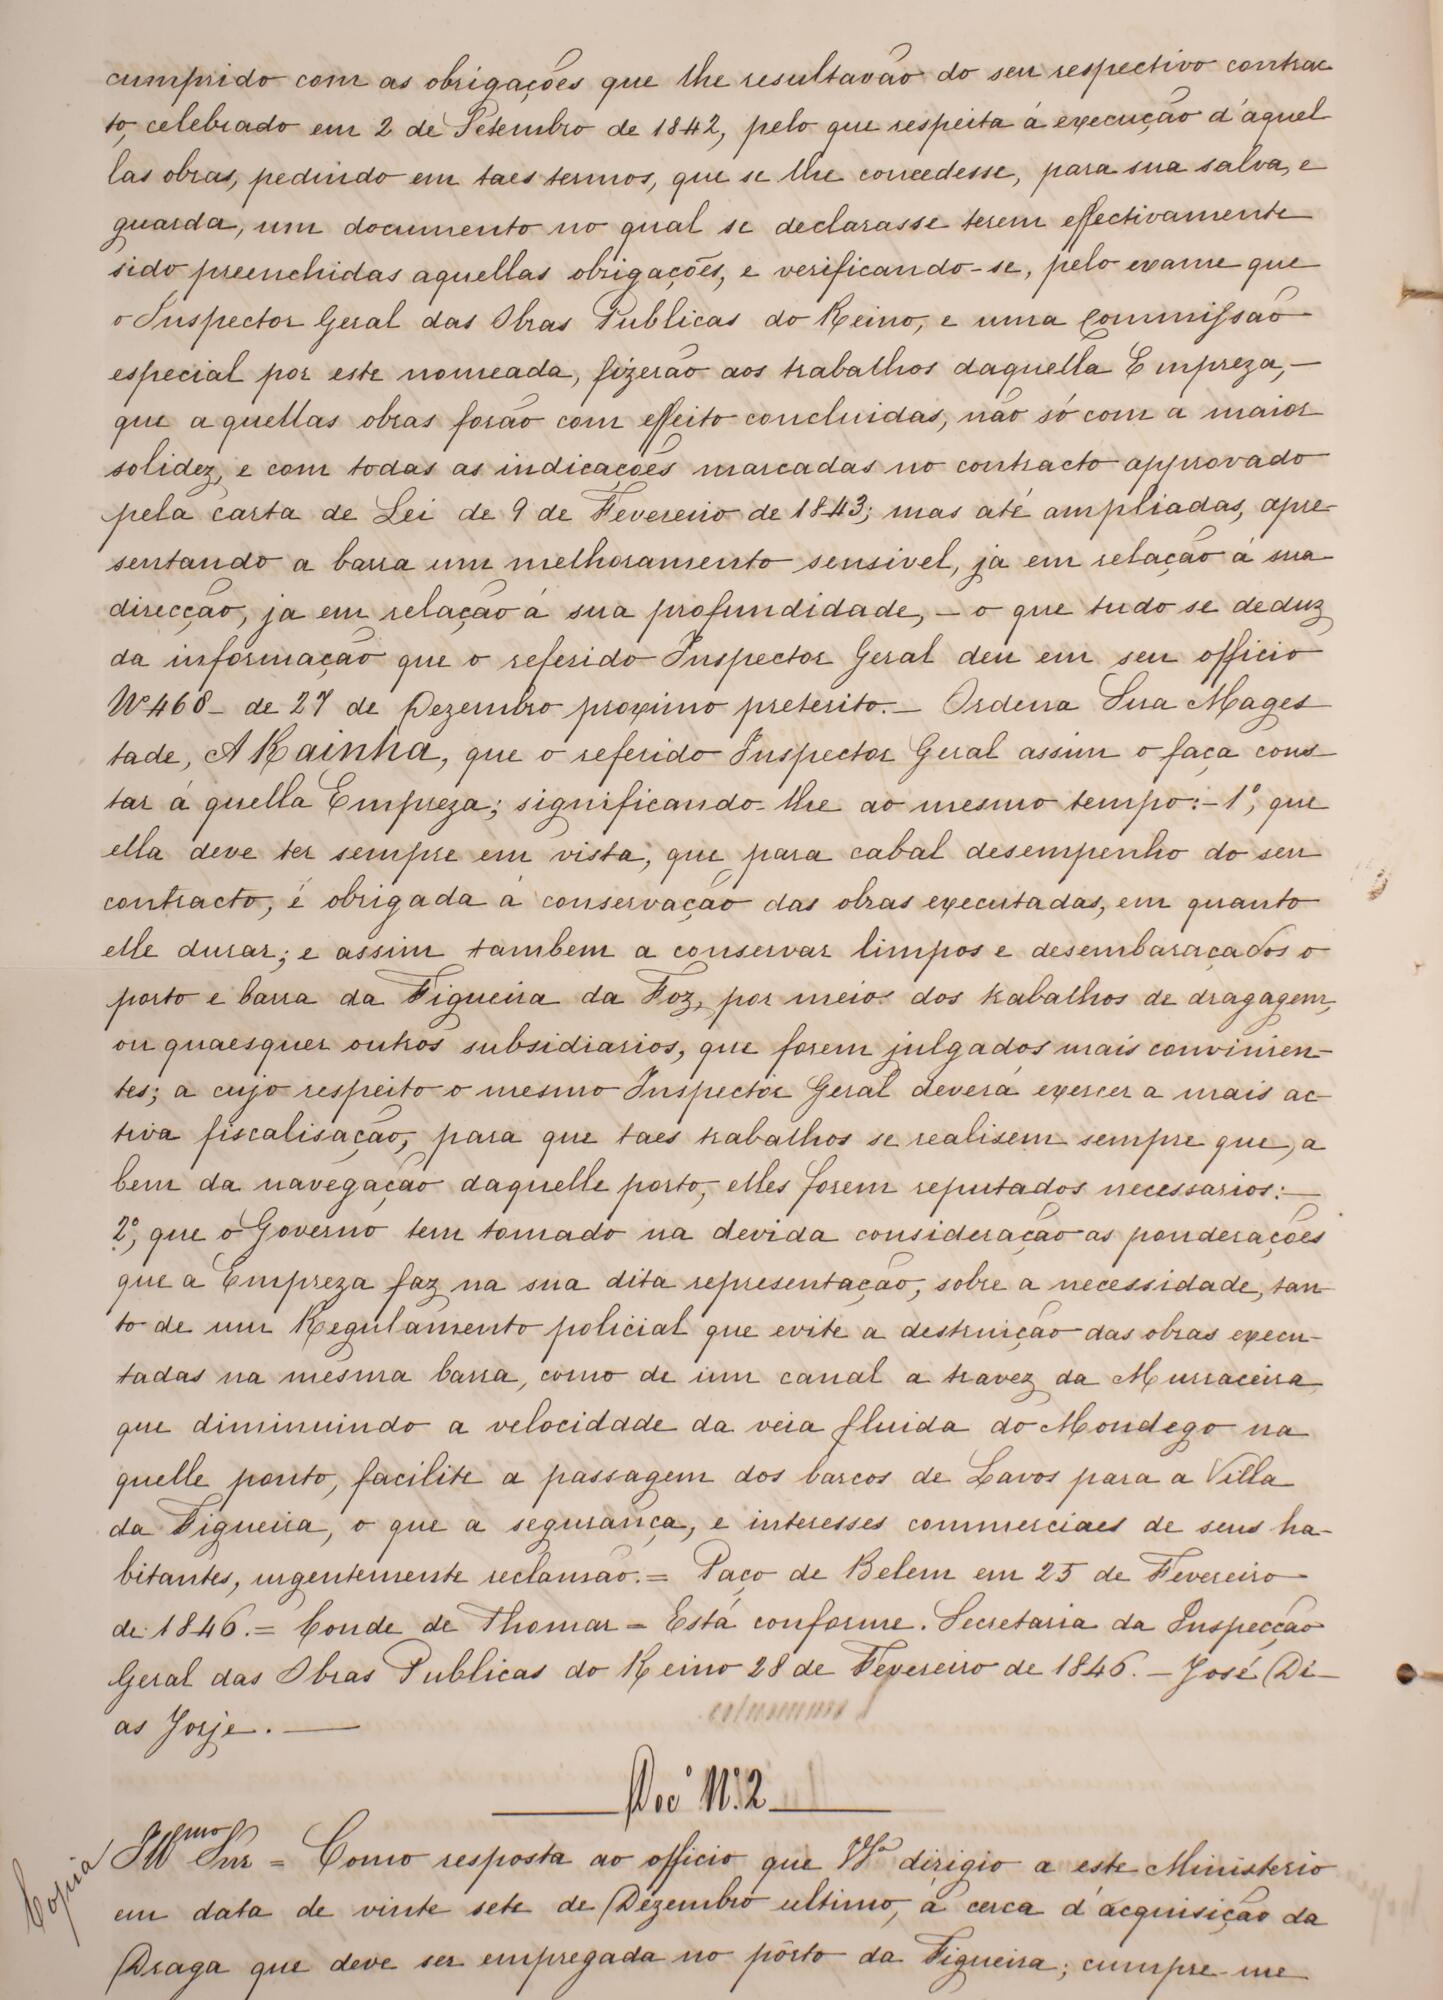 cumprido com as obrigações que lhe resultavão do seu respectivo contrac
to, celebrado em 2 de Setembro de 1842, pelo que respeita á execução d'aquel
las obras, pedindo em taes termos, que se lhe concedesse, para sua salva, e
guarda, um documento no qual se declarasse terem effectivamente
sido preenchidas aquellas obrigações, e verificando-se, pelo exame que
o Inspector Geral das Obras Publicas do Reino, e uma Commissão
especial por este nomeada, fizerão aos trabalhos daquella Empreza, —
que aquellas obras forão com effeito concluidas, não só com a maior
solidez, e com todas as indicações marcadas no contracto approvado
pela carta de Lei de 9 de Fevereiro de 1843; mas até ampliadas, apre-
sentando a barra um melhoramento sensivel, ja em relação á sua
direcção, ja em relação á sua profundidade, — o que tudo se deduz
da informação que o referido Inspector Geral deu em seu officio
Nº 468 — de 27 de Dezembro proximo preterito. — Ordena Sua Mages
tade, A Rainha, que o referido Inspector Geral assim o faça cons-
tar á quella Empreza; significando-lhe ao mesmo tempo: — 1º, que
ella deve ter sempre em vista, que para cabal desempenho do seu
contracto, é obrigada á conservação das obras executadas, em quanto
elle durar; e assim tambem a conservar limpos e desembaraçados o
porto e barra da Figueira da Foz, por meio dos trabalhos de dragagem,
ou quaesquer outros subsidiarios, que forem julgados mais convinien-
tes; a cujo respeito o mesmo Inspector Geral deverá exercer a mais ac-
tiva fiscalisação, para que taes trabalhos se realisem sempre que, a
bem da navegação daquelle porto, elles forem reputados necessarios: —
2º, que o Governo tem tomado na devida consideração as ponderações
que a Empreza faz na sua dita representação, sobre a necessidade, tan-
to de um Regulamento policial que evite a destruição das obras execu-
tadas na mesma barra, como de um canal a travez da Murraceira
que diminuindo a velocidade da veia fluida do Mondego na
quelle ponto, facilite a passagem dos barcos de Lavos para a Villa
da Figueira, o que a segurança, e interesses commerciaes de seus ha-
bitantes, urgentemente reclamão. = Paço de Belem em 25 de Fevereiro
de 1846. = Conde de Thomar = Está conforme. Secretaria da Inspecção
Geral das Obras Publicas do Reino 28 de Fevereiro de 1846. — José Di-
as Jorje. —
Docº Nº. 2
Copia
Illmo Snr = Como resposta ao officio que VSª dirigio a este Ministerio
em data de vinte sete de Dezembro ultimo, á cerca d'acquisição da
Draga que deve ser empregada no pôrto da Figueira; cumpre-me